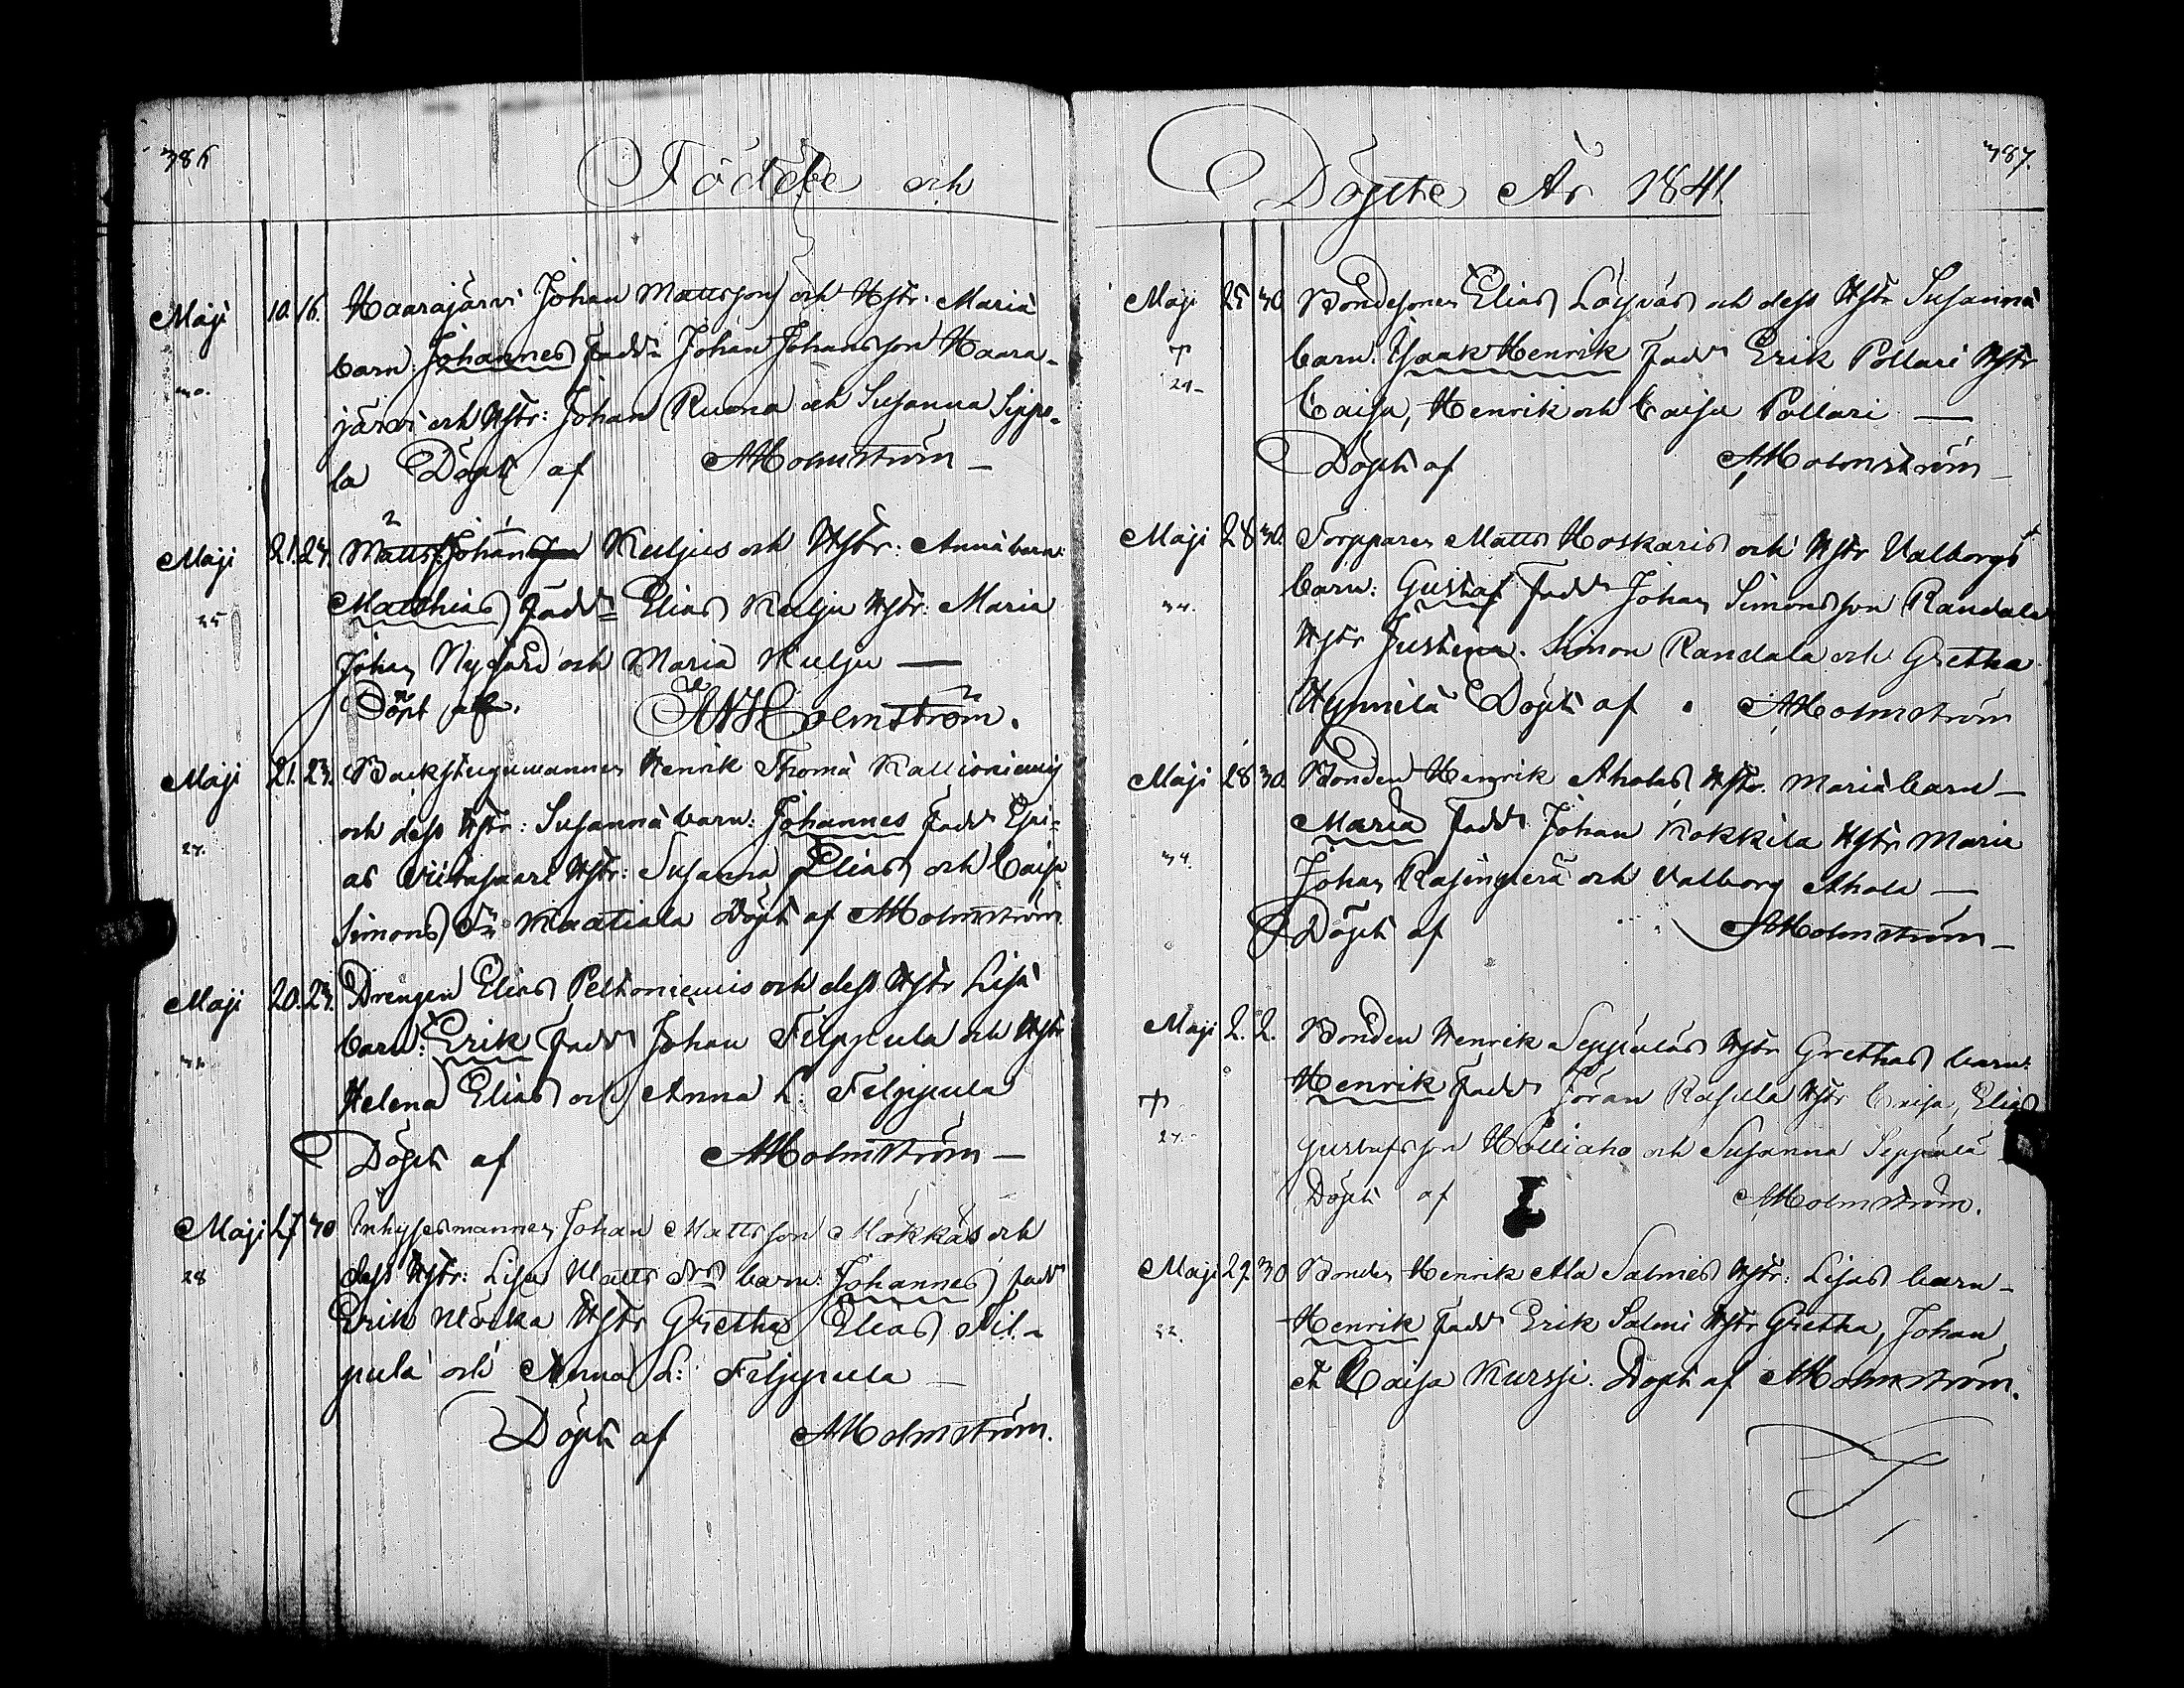 386
Födde och
Maji 10. 16. Haarajärvi Johan Mattsson och Hstr. Mariä
barn Johannes Fadd: Johan Johansson Haara-
30.
järvi och Hstr: Johan Ruona och Susanna Sippo-
la Döpt af AHolmström
Maji 21. 23. Matts Johan Kuljus och Hstr: Annä barn:
Matthias Fadd: Elias Kulju Hstr: Maria
25
Johan Nygård och Maria Kulju
Döpt af. AHolmström.
Maji 21. 23. Backstugumannen Henrik Thomä Kallioniemis
och dess Hstr: Susannä barn: Johannes Fadd: Esai-
27.
as Viitasaari Hstr: Susanna Elias och Caisa
Simons Dr Maatiala Döpt af AHolmström
Maji 20. 23. Drengen Elias Peltoniemis och dess Hstr Lisä
barn: Erik Fadd: Johan Filppula och Hstr
Helena Elias och Anna L: Filppula
Döpt af AHolmström
Maji 27 30 Inhysesmannen Johan Mattsson Mökkäs och
28
dess Hstr: Lisa Matts Drs barn: Johannes Fadd:
Erik Möcka Hstr Gretha Elias Fil-
pula och Anna L: Filppula
Döpt af AHolmström.
387.
Döpte År 1841.
Maji 25 30 Bondesonen Elias Löyväs och dess Hstr Susannä
barn: Isaak Henrik Fadd: Erik Pollari Hstr
24
Caisa, Henrik och Caisa Pollari
Döpt af AHolmström
Maji 28 30. Torpparen Matts Koskaris och Hstr Valborgs
barn: Gustaf Fadd: Johan Simonsson Randala
34.
Hstr Justina. Simon Randala och Gretha
Hynnilä Döpt af AHolmström
Maji 28 30. Bonden Henrik Aholas Hstr. Mariä barn
Maria Fadd: Johan Kokkila Hstr Maria
34.
Johan Rasinperä och Valborg Ahola
Döpt af AHolmström
Maji 2. 2. Bonden Henrik Seppäläs Hstr Grethas barn:
Henrik Fadd: Jöran Rasula Hstr Caisa, Elias
27.
Gustafsson Holliaho och Susanna Seppälä
Döpt af AHolmström.
Maji 27. 30 Bonden Henrik Ala Salmes Hstr: Lisas barn
Henrik Fadd: Erik Salmi Hstr Gretha, Johan
22.
et Caisa Kurssi. Döpt af AHolmström.